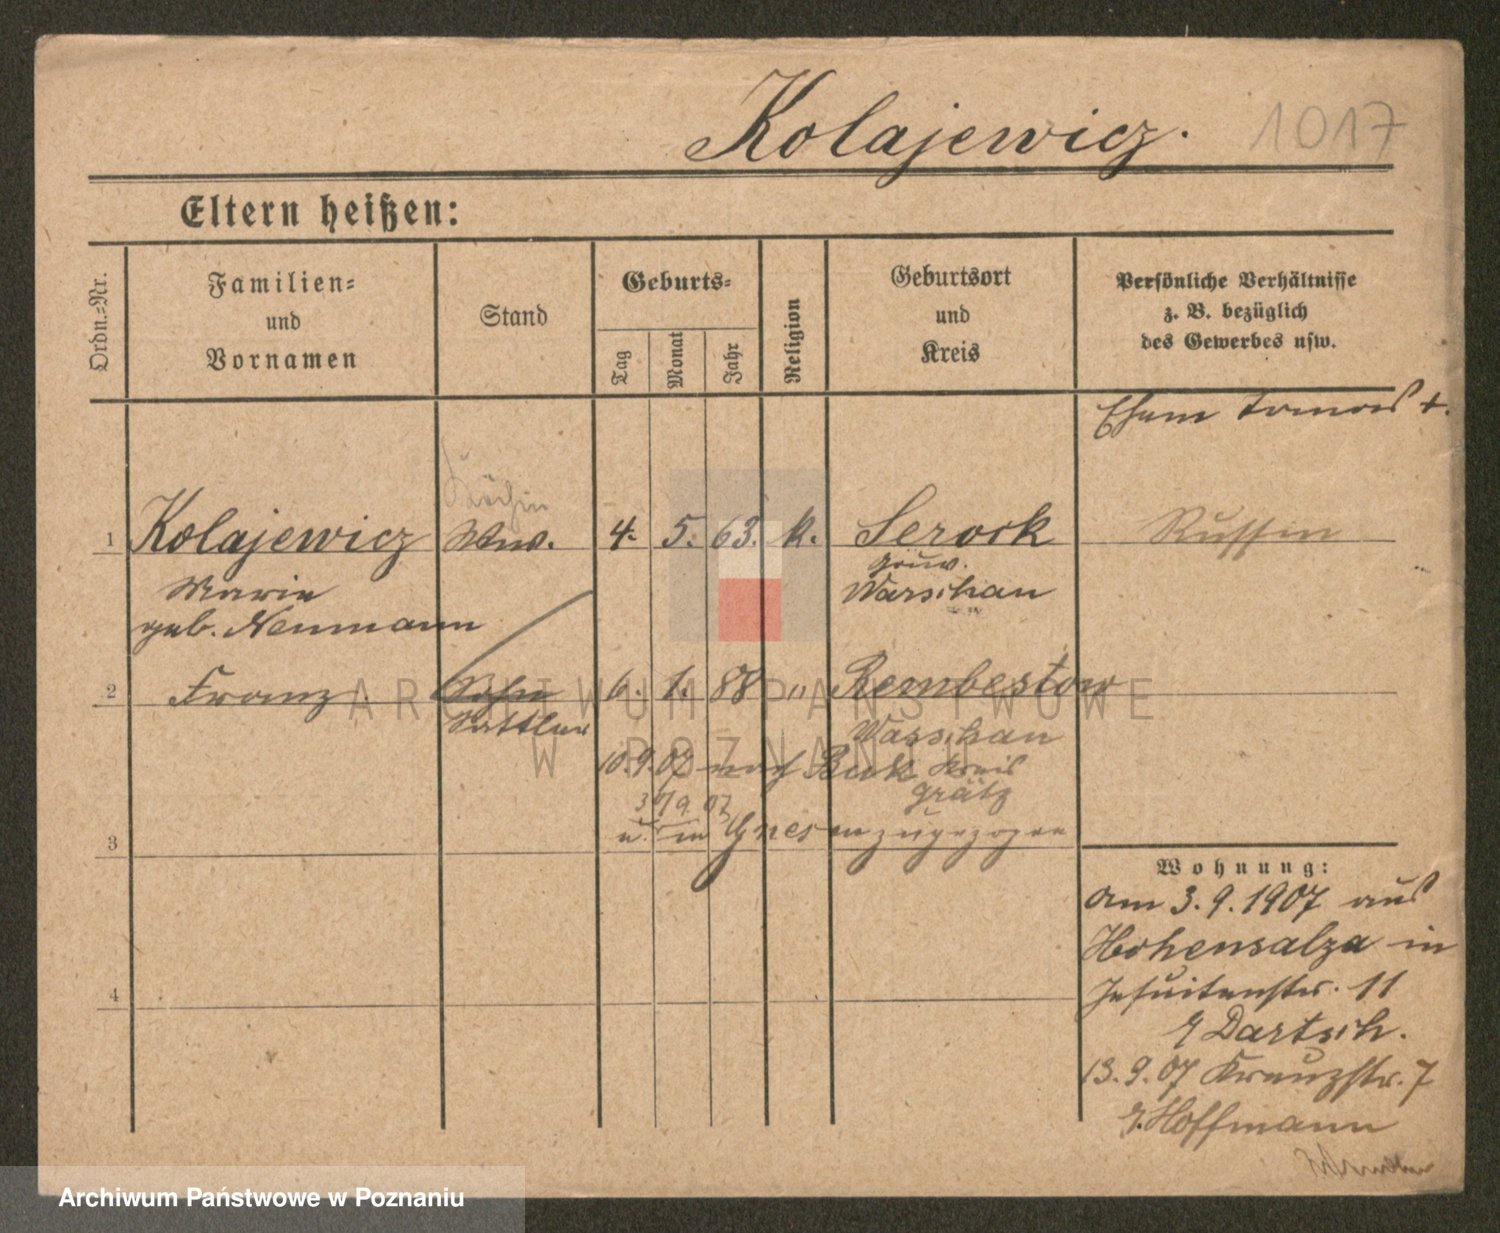 Kolajewicz.
1017
Eltern heißen:
Ordn.-Nr.
Familien-
und
Vornamen
Stand
Geburts-
Tag
Monat
Jahr
Religion
Geburtsort
und
Kreis
Persönliche Verhältnisse
z. B. bezüglich
des Gewerbes usw.
+.
Köchin
1 Kolajewicz Ww. 4. 5. 63. k. Serock Russin
Gouv.
Marie Warschau
geb. Neumann
2 Franz. Sohn 6. 1. 88 " Rembestow
Sattler Warschau
10.9.07 nach Buk Kreis
Grätz
30/9. 07
u. in Gnesen zugezogen
3
Wohnung:
am 3.9.1907 aus
Hohensalza in
Jesuitenstr. 11
4
b/ Dartsch.
13.9.07 Kreuzstr. 7
b. Hoffmann
ARCHIWUM PAŃSTWOWE
W POZNANIU
Archiwum Państwowe w Poznaniu